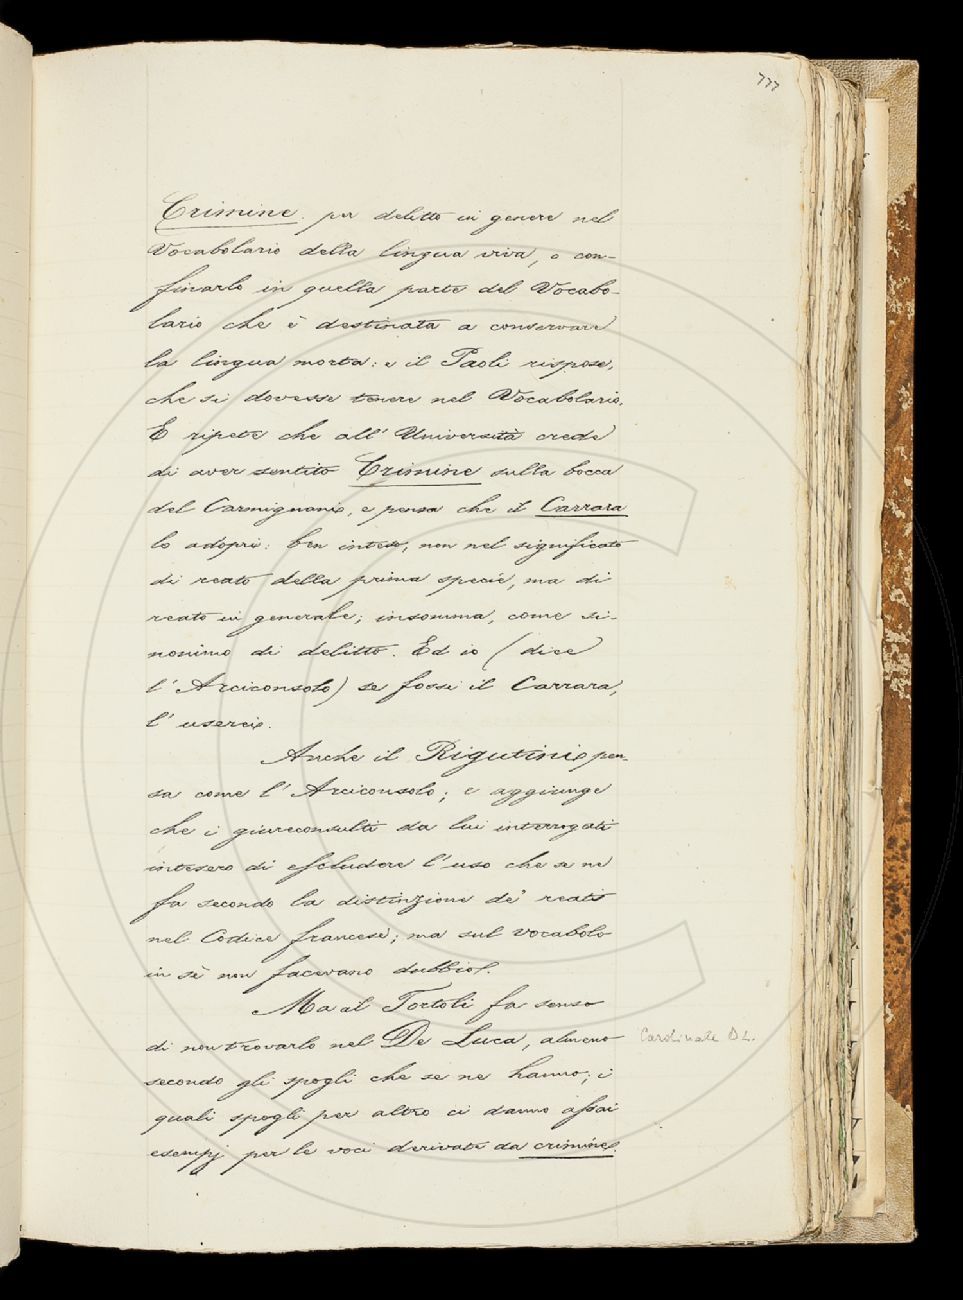 777
Crimine per delitto in genere nel
Vocabolario della lingua viva, o con-
finarlo in quella parte del Vocabo-
lario che è destinata a conservare
la lingua morta: e il Paoli rispose,
che si dovesse tenere nel Vocabolario.
E ripete che all' Università crede
di aver sentito Crimine sulla bocca
del Carmignani, e pensa che il Carrara
lo adopri: ben inteso, non nel significato
di reato della prima specie, ma di
reato in generale; insomma, come si-
nonimo di delitto. Ed io (dice
l' Arciconsolo) se fossi il Carrara,
l' userei.
Anche il Rigutini pen-
sa come l' Arciconsolo; e aggiunge
che i giureconsulti da lui interrogati
intesero di escludere l' uso che se ne
fa secondo la distinzione de' reati
nel Codice francese; ma sul vocabolo
in sè non facevano dubbio.
Ma al Tortoli fa senso
di non trovarlo nel De Luca, almeno
Cardinale D L.
secondo gli spogli che se ne hanno; i
quali spogli per altro ci danno assai
esempj per le voci derivate da crimine.